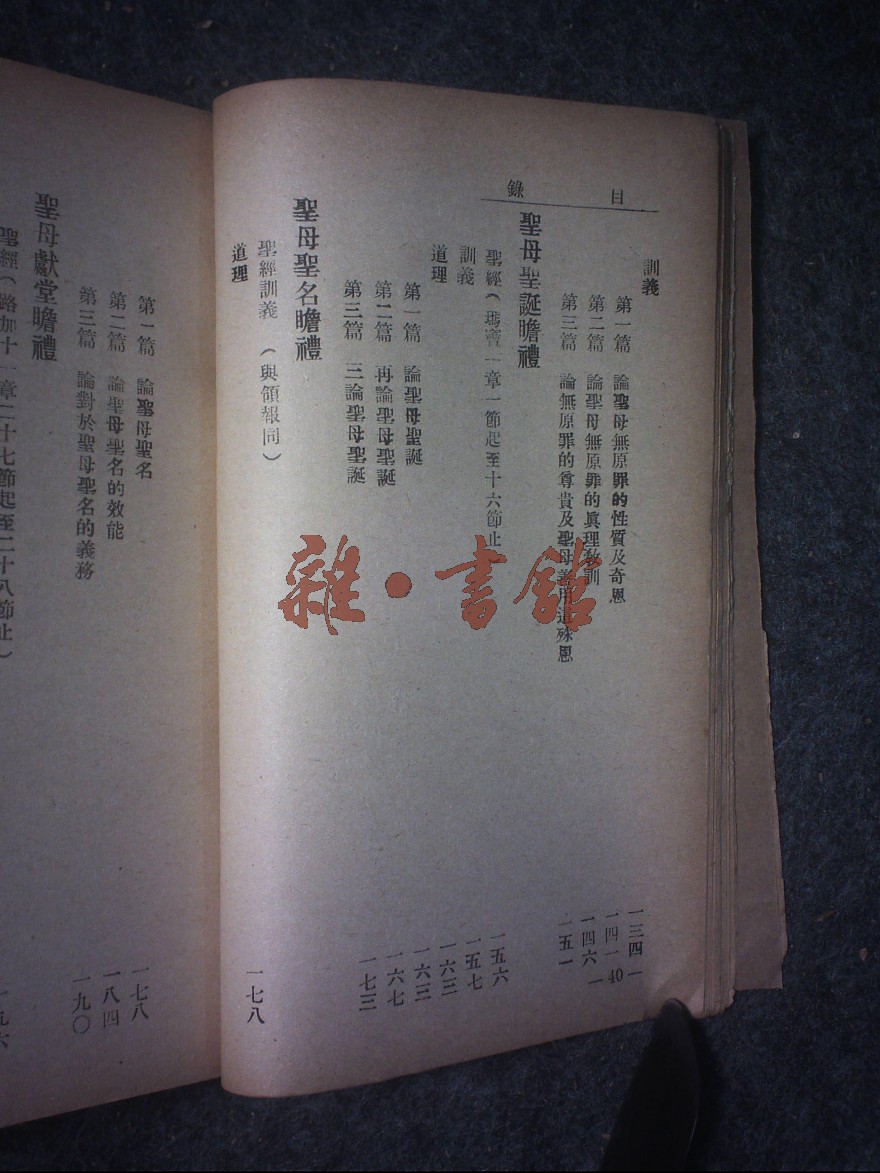 目錄
訓義 一三四
第一篇 論聖母無原罪的性質及奇恩 一四一
第二篇 論聖母無原罪的眞理教訓 一四六
第三篇 論無原罪的尊貴及聖母善用這殊恩 一五一
聖母聖誕瞻禮
聖經(瑪竇一章一節起至十六節止 一五六
訓義 一五七
道理 一六三
第一篇 論聖母聖誕 一六三
第二篇 再論聖母聖誕 一六七
第三篇 三論聖母聖誕 一七三
聖母聖名瞻禮
聖經訓義(與領報同)
道理 一七八
— 40 —
第一篇 論聖母聖名 一七八
第二篇 論聖母聖名的效能 一八四
第三篇 論對於聖母聖名的義務 一九〇
聖母獻堂瞻禮
聖經(路加十一章二十七節起至二十八節止) 一九六
雜·書館